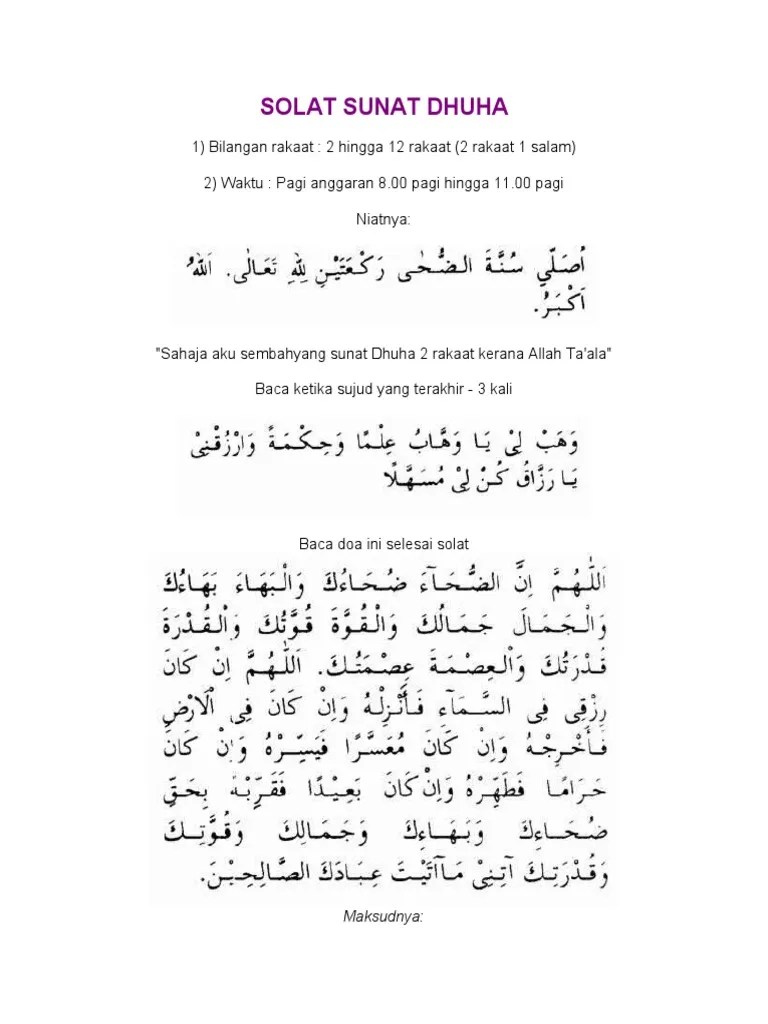 SOLAT SUNAT DHUHA
1) Bilangan rakaat : 2 hingga 12 rakaat (2 rakaat 1 salam)
2) Waktu : Pagi anggaran 8.00 pagi hingga 11.00 pagi
Niatnya:
اُصَلِّي سُنَّةَ الضُّحٰى رَكْعَتَيْنِ لِلّٰهِ تَعَالٰى. اَللهُ
اَكْبَرُ.
"Sahaja aku sembahyang sunat Dhuha 2 rakaat kerana Allah Ta'ala"
Baca ketika sujud yang terakhir - 3 kali
وَهَبْ لِيْ يَا وَهَّابُ عِلْمًا وَحِكْمَةً وَارْزُقْنِيْ
يَا رَزَّاقُ كُنْ لِيْ مُسَهِّلًا
Baca doa ini selesai solat
اَللّٰهُمَّ اِنَّ الضُّحَآءَ ضُحَاءُكَ وَالْبَهَاءَ بَهَاءُكَ
وَالْجَمَالَ جَمَالُكَ وَالْقُوَّةَ قُوَّتُكَ وَالْقُدْرَةَ
قُدْرَتُكَ وَالْعِصْمَةَ عِصْمَتُكَ. اَللّٰهُمَّ اِنْ كَانَ
رِزْقِى فِى السَّمَآءِ فَأَنْزِلْهُ وَاِنْ كَانَ فِى اْلاَرْضِ
فَأَخْرِجْهُ وَاِنْ كَانَ مُعَسَّرًا فَيَسِّرْهُ وَاِنْ كَانَ
حَرَامًا فَطَهِّرْهُ وَاِنْ كَانَ بَعِيْدًا فَقَرِّبْهُ بِحَقِّ
ضُحَاءِكَ وَبَهَاءِكَ وَجَمَالِكَ وَقُوَّتِكَ
وَقُدْرَتِكَ آتِنِيْ مَآاَتَيْتَ عِبَادَكَ الصَّالِحِيْنَ.
Maksudnya: